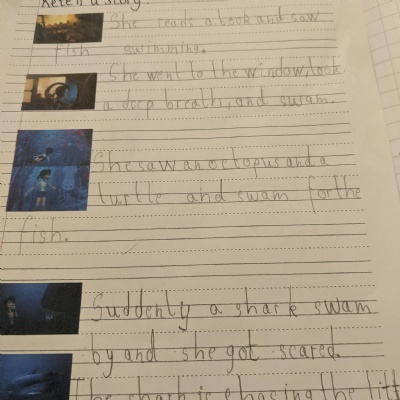 Retell a story.
She reads a book and saw
fish swimming.
She went to the window, took
a deep breath, and swam.
She saw an octopus and a
turtle and swam for the
fish.
Suddenly a shark swam
by and she got scared.
The shark is chasing the